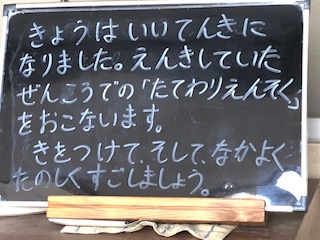 きょうはいいてんきに
なりました。えんきしていた
ぜんこうでの「たてわりえんそく」
をおこないます。
きをつけて、そして、なかよく
たのしくすごしましょう。